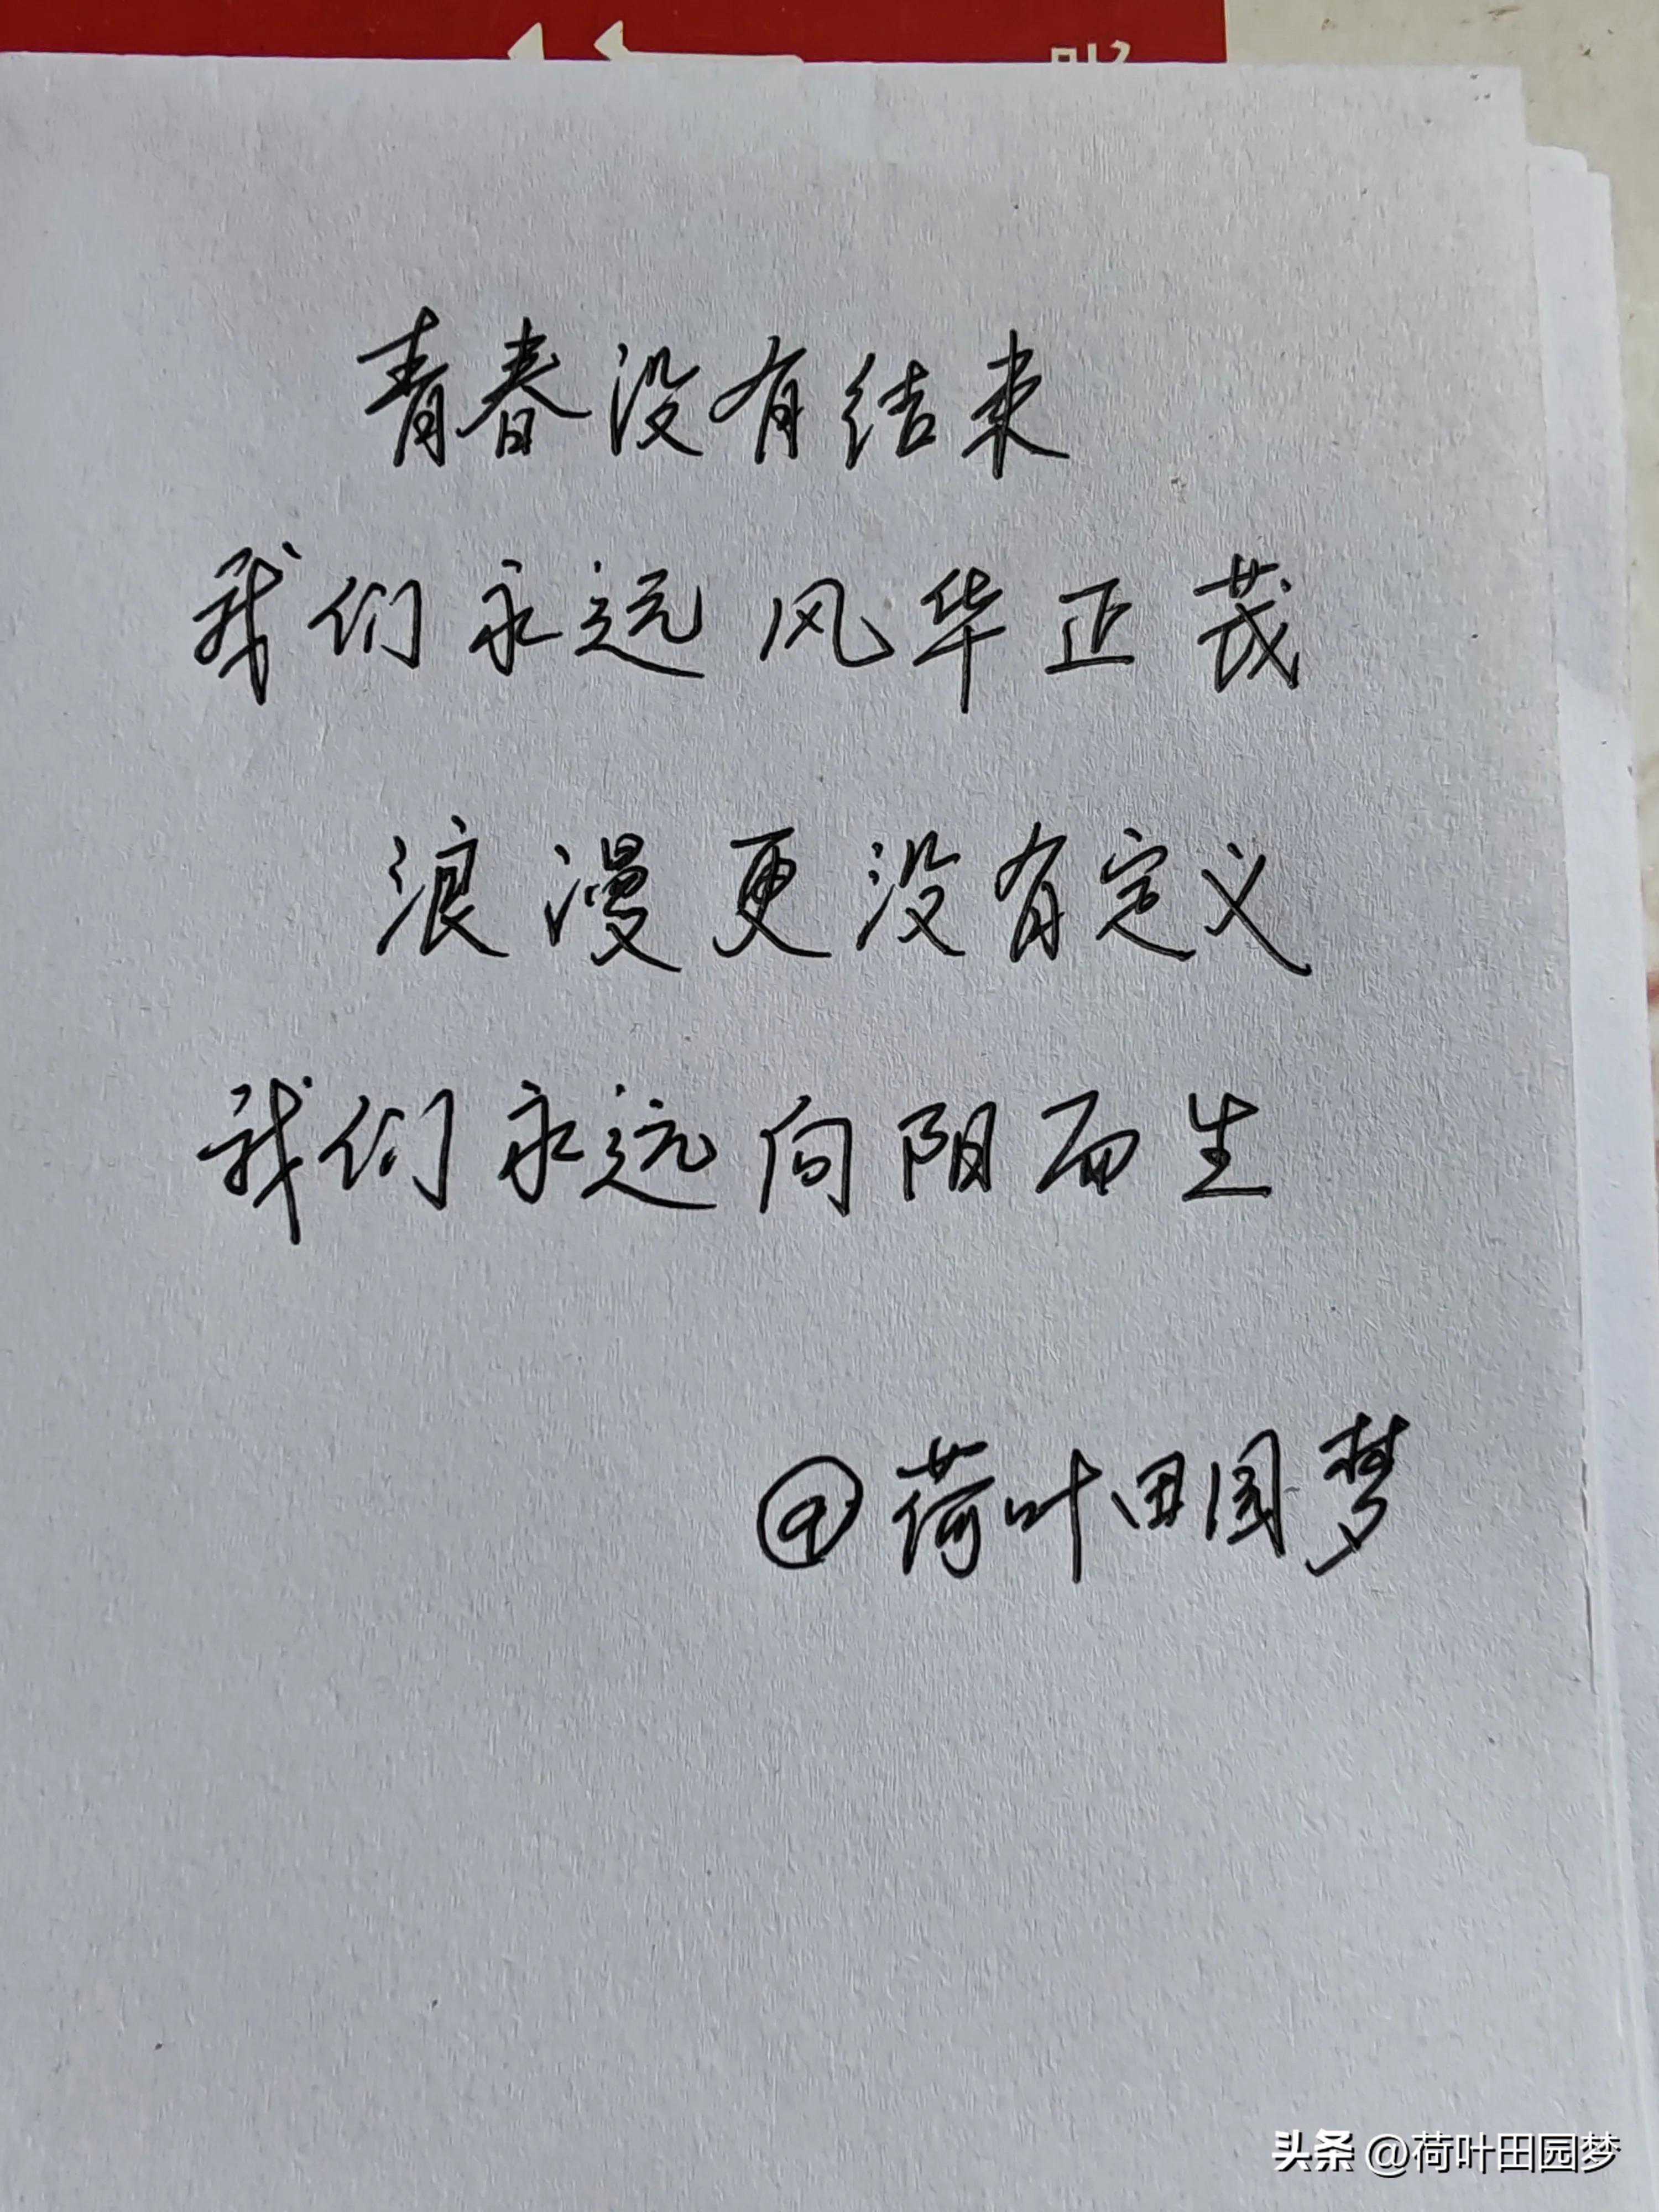 青春没有结束
我们永远风华正茂
浪漫更没有定义
我们永远向阳而生
@荷叶田园梦
头条 @荷叶田园梦